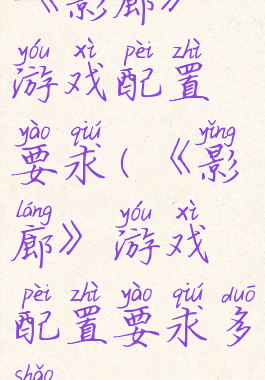 《影廊》
yóu xì pèi zhì
游戏配置
yào qiú yǐng
要求(《影
láng yóu xì
廊》游戏
pèi zhì yào qiú duō
配置要求多
shǎo